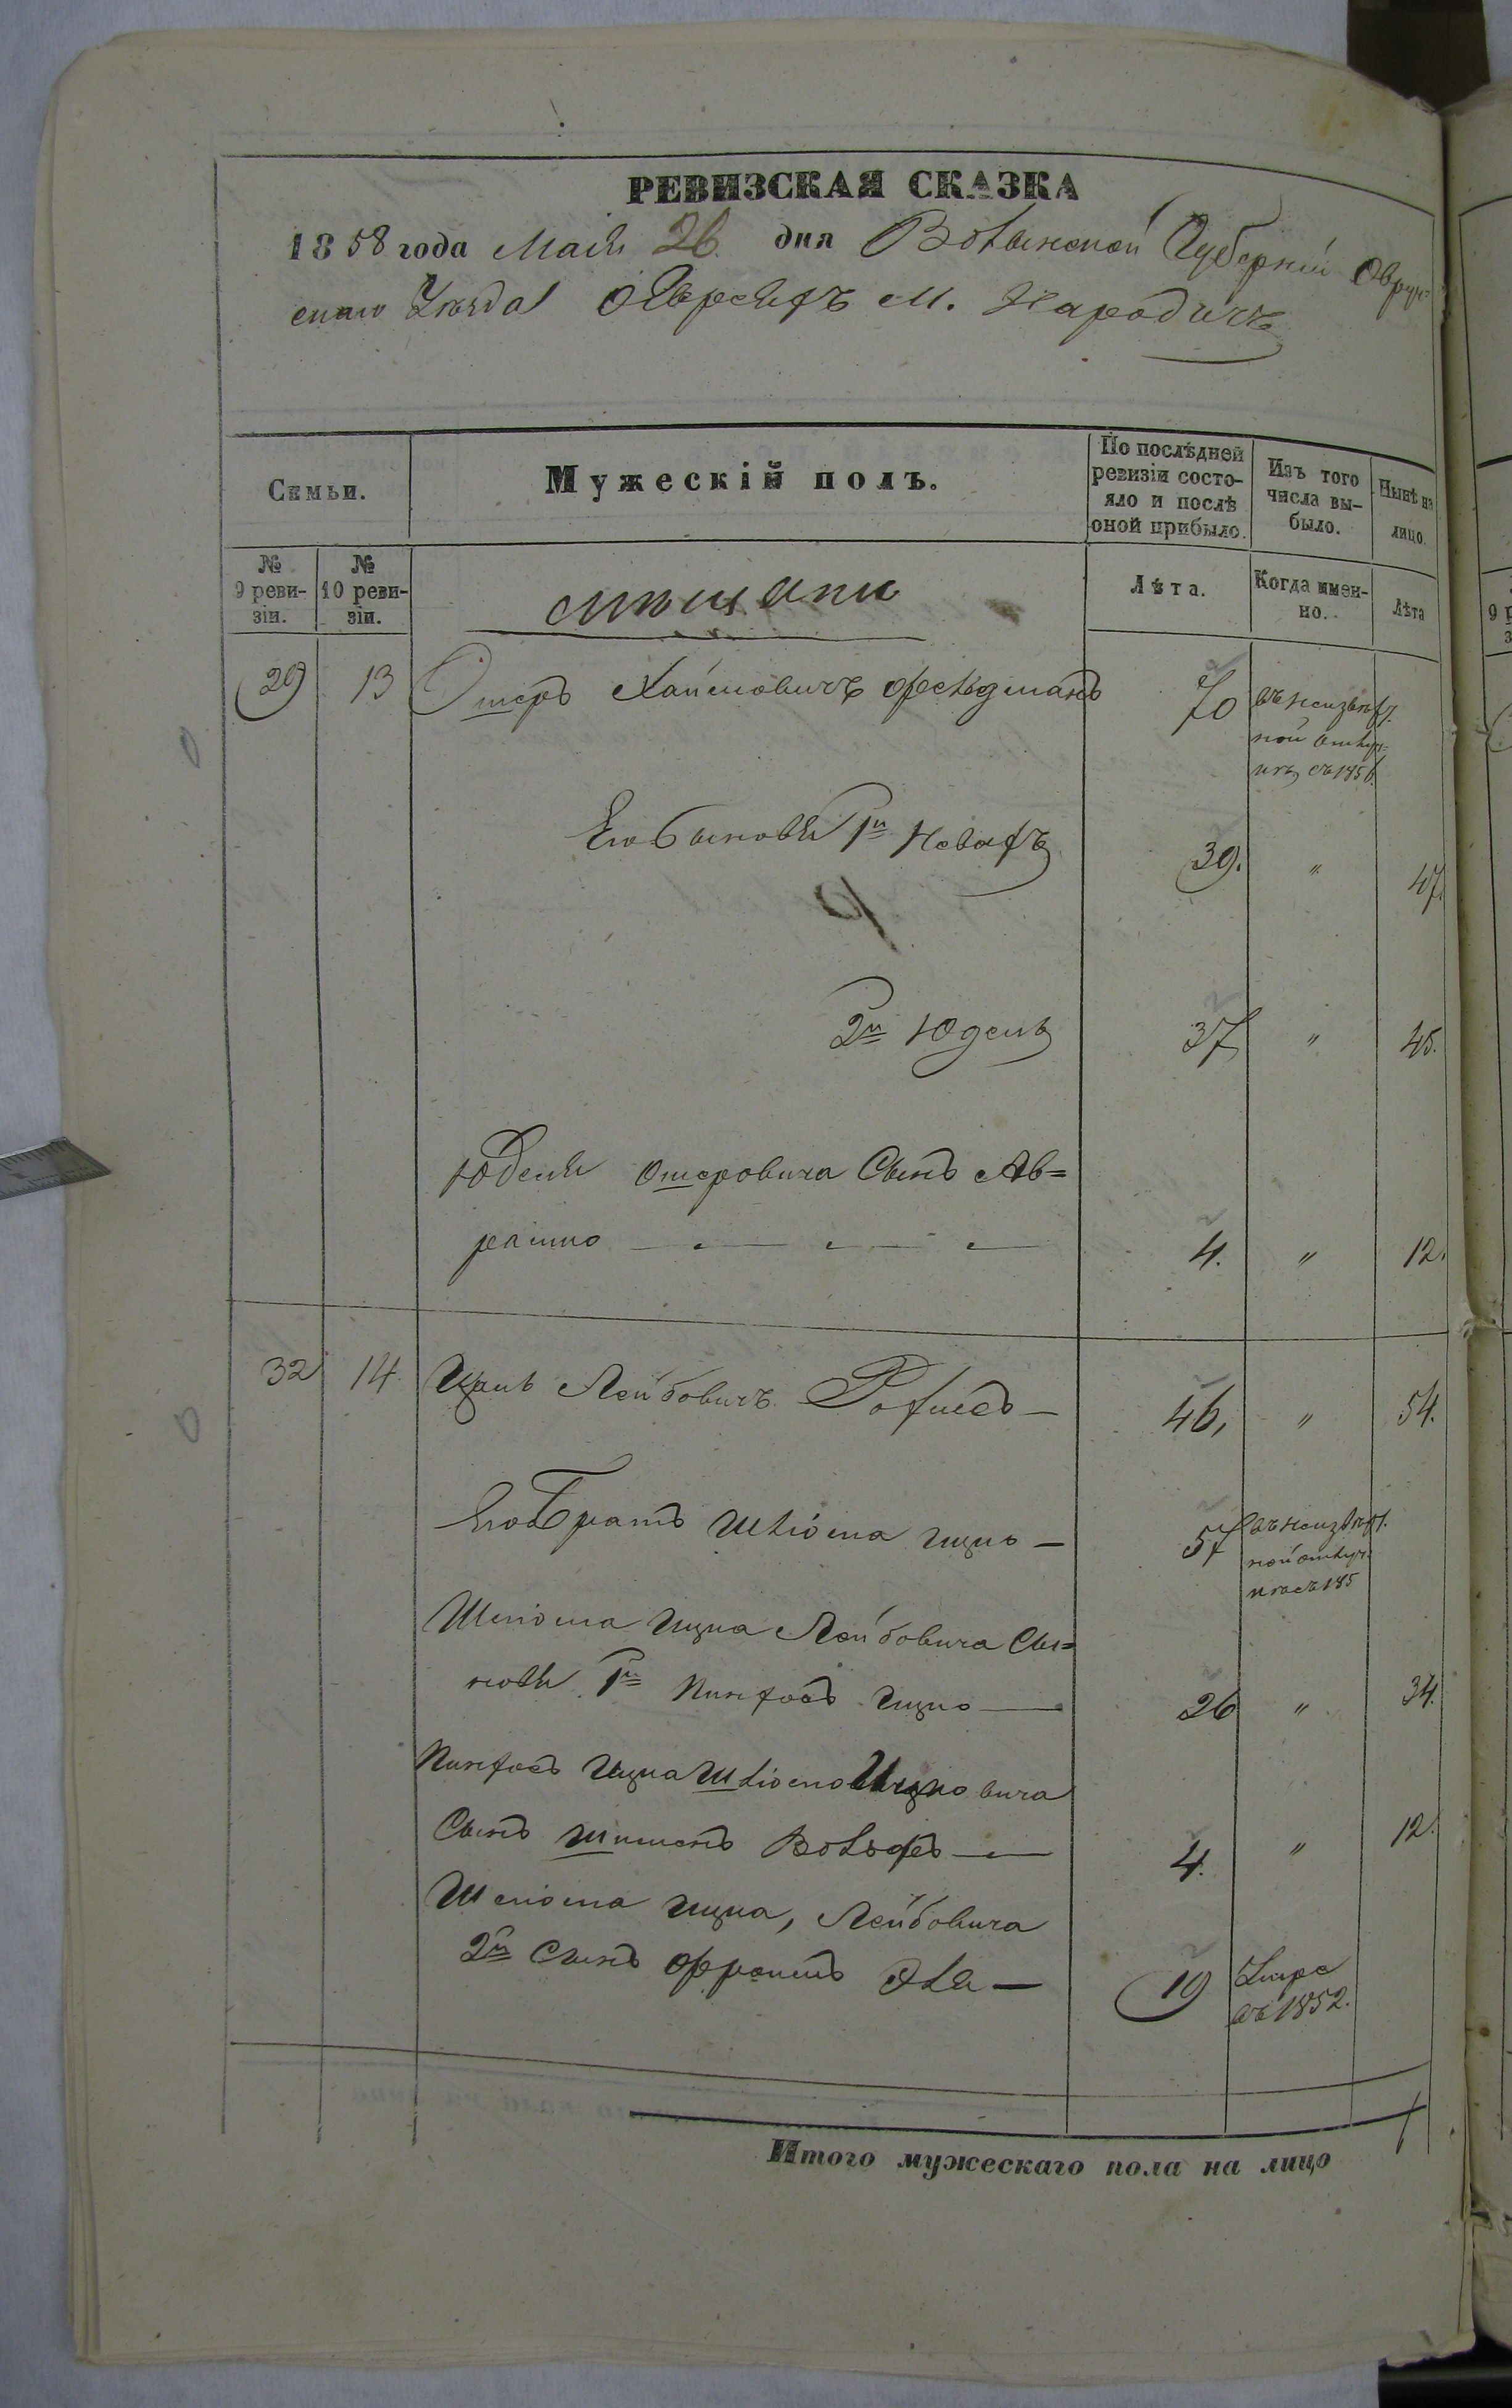 РЕВИЗСКАЯ СКАЗКА
1858 года Мая 26. дня Волынской Губерніи Овруч=
скаго Уѣзда О Евреяхъ М. Народичъ
Семьи.
Мужескій полъ.
По послѣдней ревизіи состояло и послѣ оной прибыло.
Изъ того числа выбыло.
Нынѣ на лицо.
№ 9 ревизіи.
№ 10 ревизіи.
мѣщане
Лѣта.
Когда именно.
Лѣта
29 13 Ошеръ Хаимовичъ Фельдманъ 70 въ неизвѣст.
ной отлуч=
кѣ съ 1856.
Его Сыновья 1й Новахъ 39. " 47.
2й Юдель 37 " 45.
Юделя Ошеровича Сынъ Ав=
рамко 4. " 12.
32 14 Ицко Лейбовичъ 46, " 54.
Его Братъ Шліома Ицко — 57 въ неизвѣст.
ной отлуч=
кѣ съ 185
Шліома Ицка Лейбовича Сы=
новья 1й Пинхосъ Ицко — 26 " 34.
Пинхоса Ицка Шліомо Ицковича
Сынъ Шимонъ Вольфъ — 4. " 12.
Шліома Ицка, Лейбовича
2й Сынъ Фроимъ — 19 Умре
въ 1852.
Итого мужескаго пола на лицо